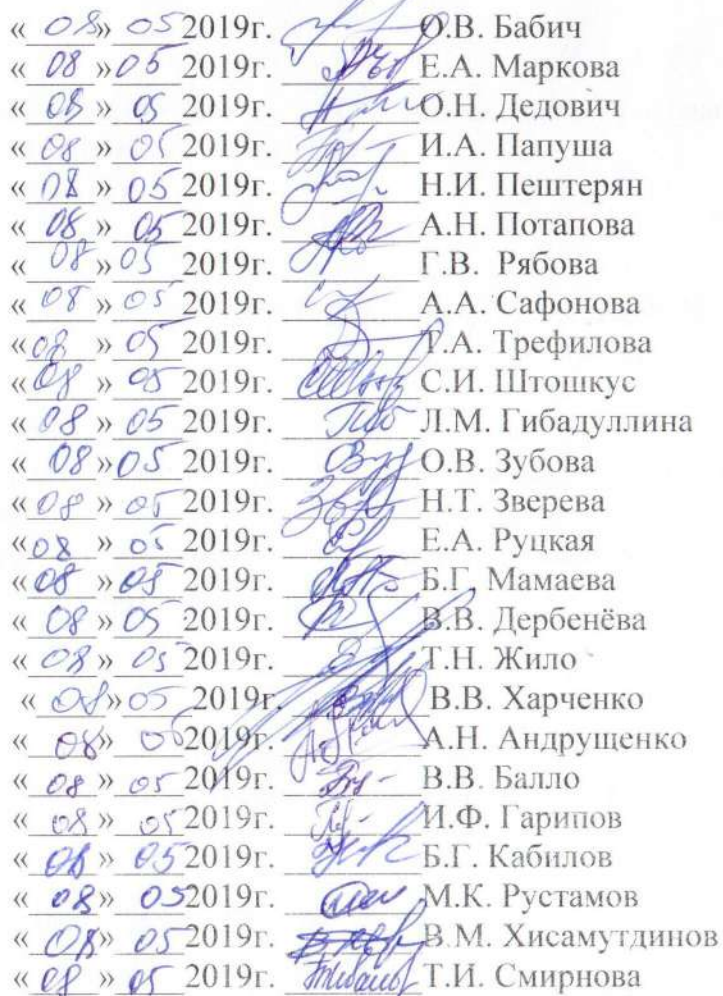 « 08 » 05 2019г. О.В. Бабич
« 08 » 05 2019г. Е.А. Маркова
« 08 » 05 2019г. О.Н. Дедович
« 08 » 05 2019г. И.А. Папуша
« 08 » 05 2019г. Н.И. Пештерян
« 08 » 05 2019г. А.Н. Потапова
« 08 » 05 2019г. Г.В. Рябова
« 08 » 05 2019г. А.А. Сафонова
« 08 » 05 2019г. Т.А. Трефилова
« 08 » 05 2019г. С.И. Штошкус
« 08 » 05 2019г. Л.М. Гибадуллина
« 08 » 05 2019г. О.В. Зубова
« 08 » 05 2019г. Н.Т. Зверева
« 08 » 05 2019г. Е.А. Руцкая
« 08 » 05 2019г. Б.Г. Мамаева
« 08 » 05 2019г. В.В. Дербенёва
« 08 » 05 2019г. Т.Н. Жило
« 08 » 05 2019г. В.В. Харченко
« 08 » 05 2019г. А.Н. Андрущенко
« 08 » 05 2019г. В.В. Балло
« 08 » 05 2019г. И.Ф. Гарипов
« 08 » 05 2019г. Б.Г. Кабилов
« 08 » 05 2019г. М.К. Рустамов
« 08 » 05 2019г. В.М. Хисамутдинов
« 08 » 05 2019г. Т.И. Смирнова